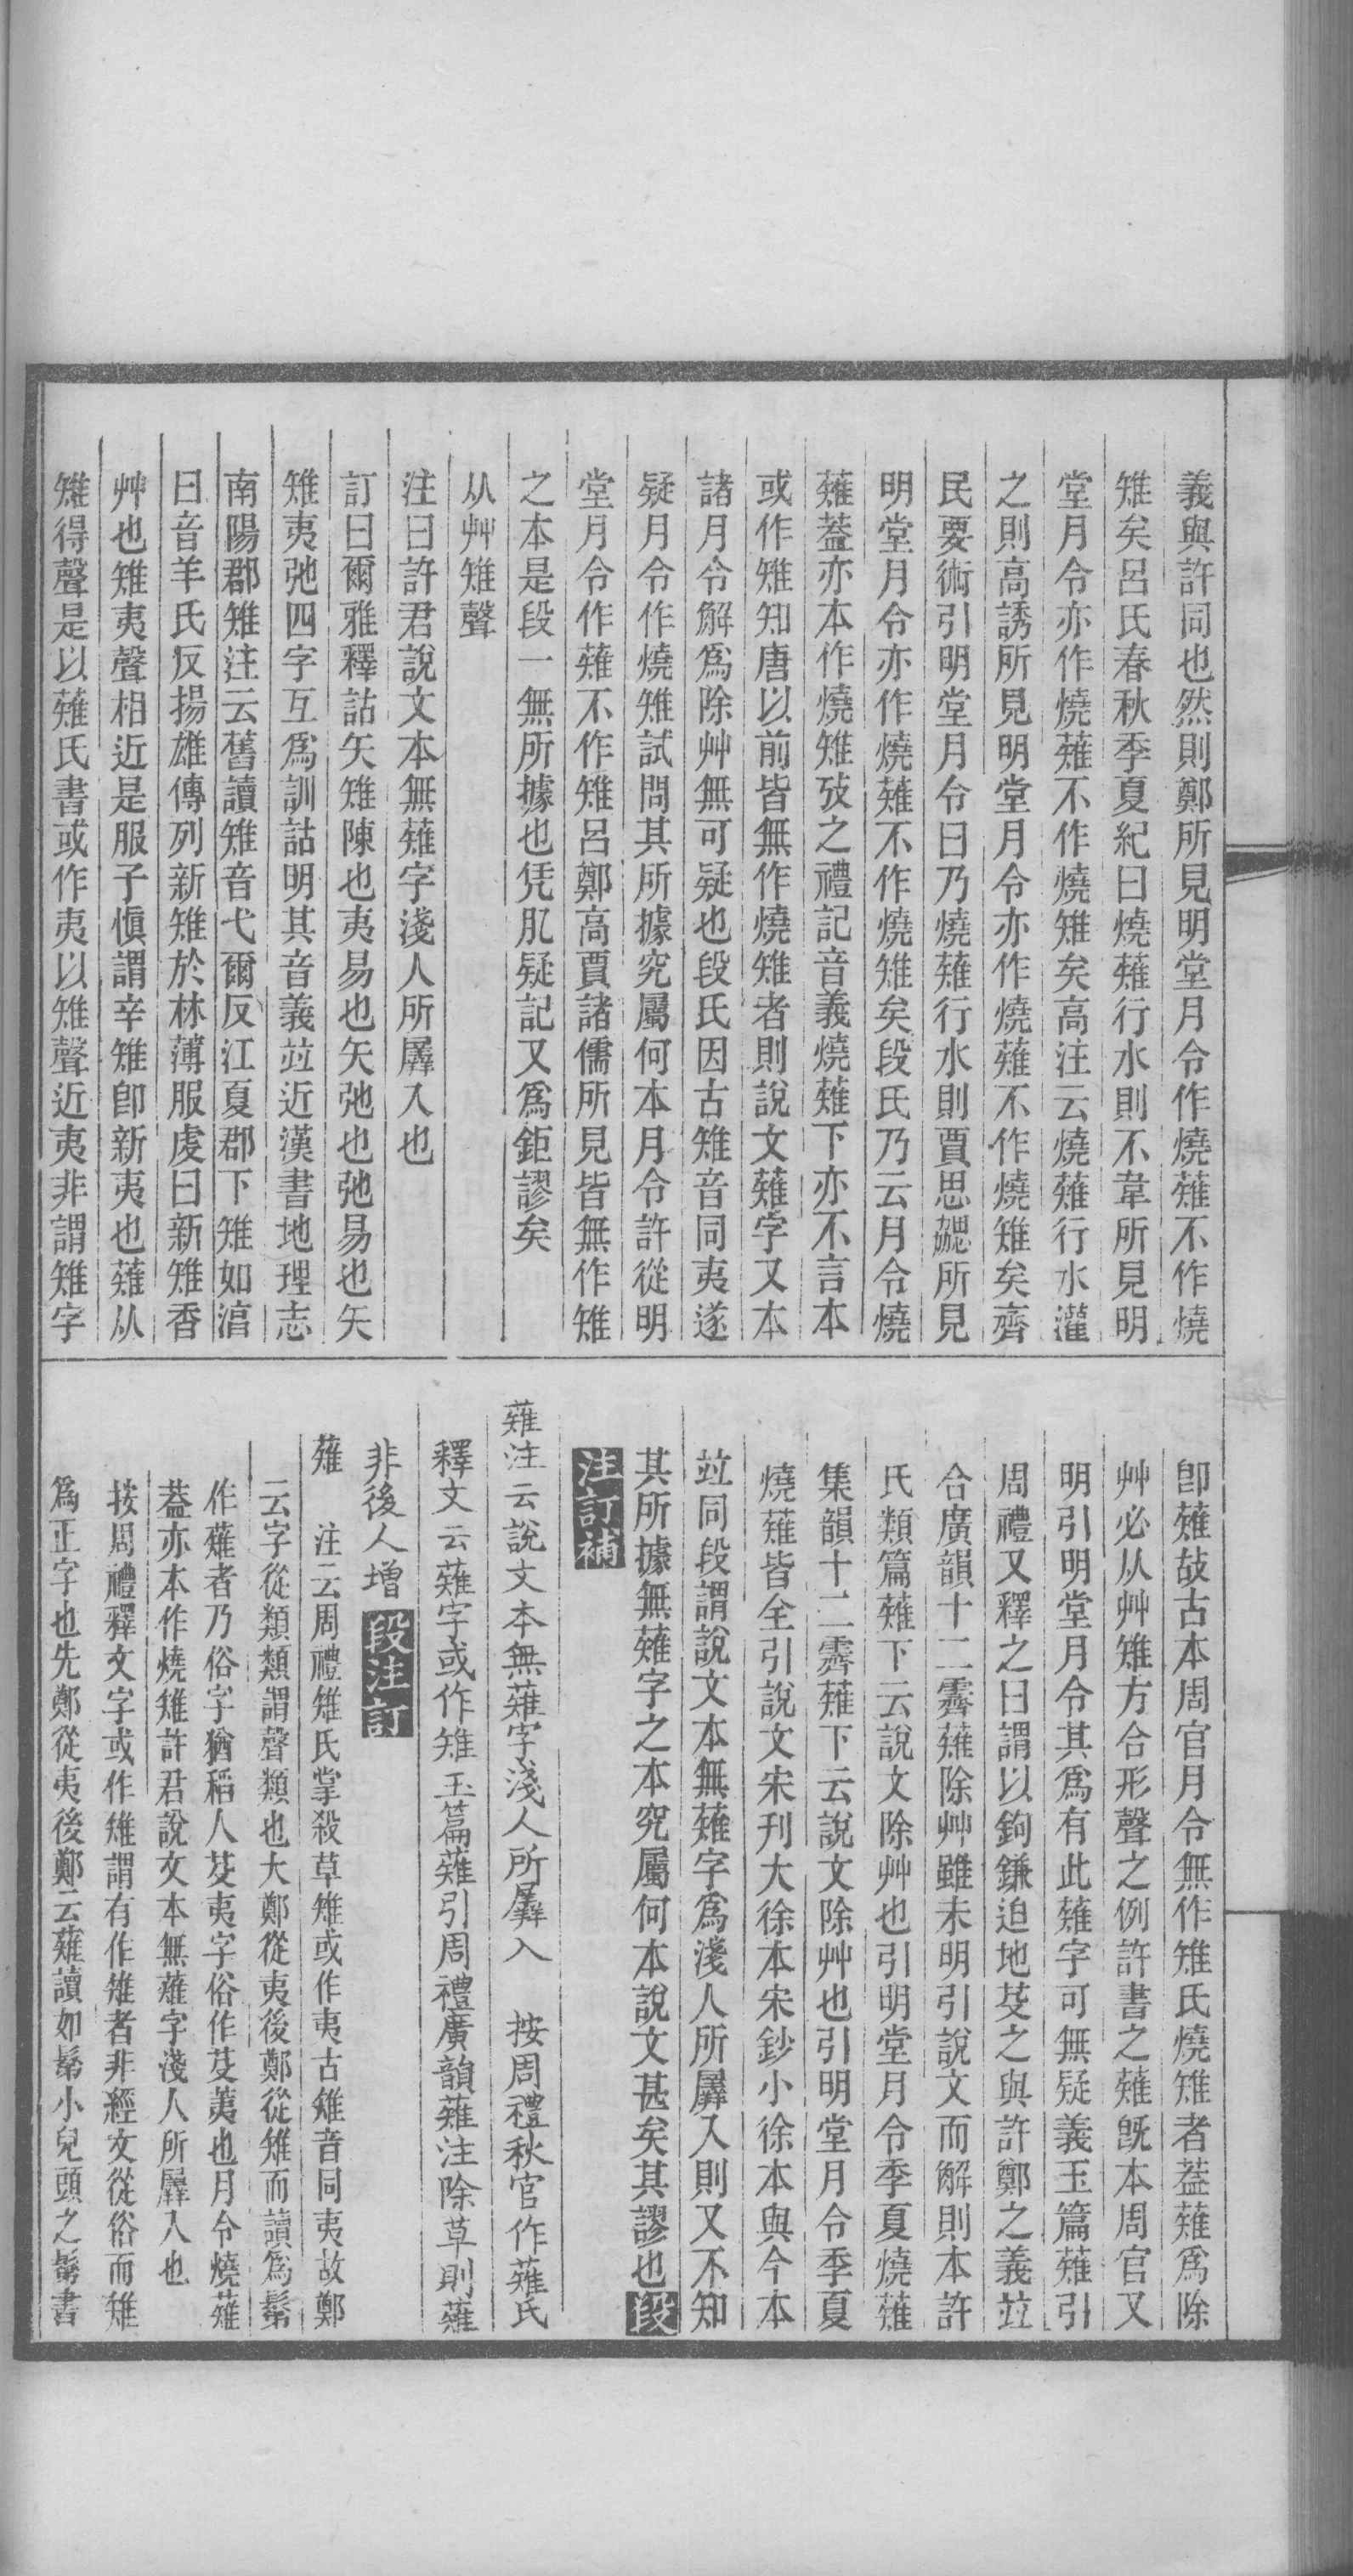 義與許同也然則鄭所見明堂月令作燒薙不作燒
雉矣呂氏春秋季夏紀曰燒薙行水則不韋所見明
堂月令亦作燒薙不作燒雉矣高注云燒薙行水灌
之則高誘所見明堂月令亦作燒薙不作燒雉矣齊
民要術引明堂月令曰乃燒薙行水則賈思勰所見
明堂月令亦作燒薙不作燒雉矣段氏乃云月令燒
薙葢亦本作燒雉攷之禮記音義燒薙下亦不言本
或作雉知唐以前皆無作燒雉者則說文薙字又本
諸月令解爲除艸無可疑也段氏因古雉音同夷遂
疑月令作燒雉試問其所據究屬何本月令許從明
堂月令作薙不作雉呂鄭高賈諸儒所見皆無作雉
之本是段一無所據也凭肊疑記又爲鉅謬矣
从艸雉聲
注曰許君說文本無薙字淺人所羼入也
訂曰爾雅釋詁矢雉陳也夷易也矢弛也弛易也矢
雉夷弛四字互爲訓詁明其音義竝近漢書地理志
南陽郡雉注云舊讀雉音弋爾反江夏郡下雉如湻
曰音羊氏反揚雄傳列新雉於林薄服虔曰新雉香
艸也雉夷聲相近是服子愼謂辛雉卽新夷也薙从
雉得聲是以薙氏書或作夷以雉聲近夷非謂雉字
卽薙攱古本周官月令無作雉氏燒雉者葢薙爲除
艸必从艸雉方合形聲之例許書之薙旣本周官又
明引明堂月令其爲有此薙字可無疑義玉篇薙引
周禮又釋之曰謂以鉤鎌迫地芟之與許鄭之義竝
合廣韻十二霽薙除艸雖未明引說文而解則本許
氏類篇薙下云說文除艸也引明堂月令季夏燒薙
集韻十二霽薙下云說文除艸也引明堂月令季夏
燒薙皆全引說文宋刊大徐本宋鈔小徐本與今本
竝同段謂說文本無薙字爲淺人所羼入則又不知
其所據無薙字之本究屬何本說文甚矣其謬也段
注訂補
薙注云說文本無薙字淺人所羼入　按周禮秋官作薙氏
釋文云薙字或作雉玉篇薙引周禮廣韻薙注除草則薙
非後人增段注訂
薙　注云周禮雉氏掌殺草雉或作夷古雉音同夷故鄭
云字從類類謂聲類也大鄭從夷後鄭從雉而讀爲鬀
作薙者乃俗字猶稻人芟夷字俗作芟荑也月令燒薙
葢亦本作燒雉許君說文本無薙字淺人所羼入也
按周禮釋文字或作雉謂有作雉者非經文從俗而雉
爲正字也先鄭從夷後鄭云薙讀如鬀小兒頭之鬀書